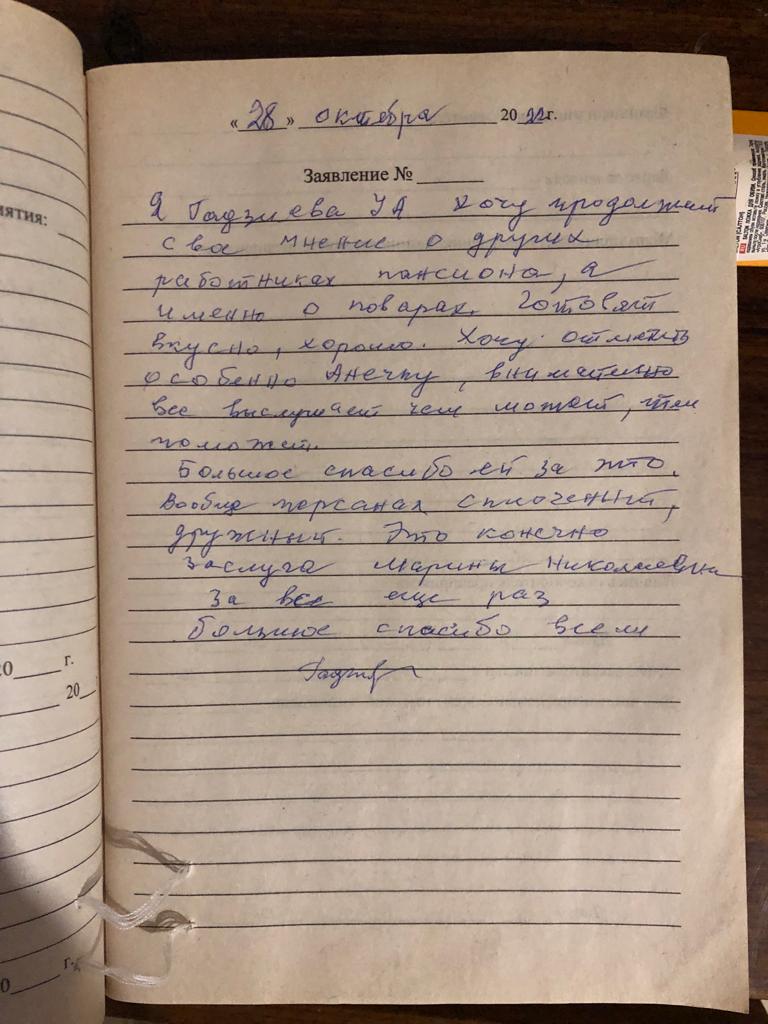 « 28 » октября 20 22г.
Заявление №
Я Гадзиева УА хочу продолжит
свое мнение о других
работниках пансиона, а
именно о поварах. Готовят
вкусно, хорошо. Хочу отметить
особенно Анечку, внимательно
все выслушает чем может, тем
поможет.
Большое спасибо ей за это.
Вообще персонал сплоченый,
дружный. Это конечно
заслуга Марины Николаевны
За все еще раз
большое спасибо всем
ИЯТИЯ:
20 г.
20
0 г.